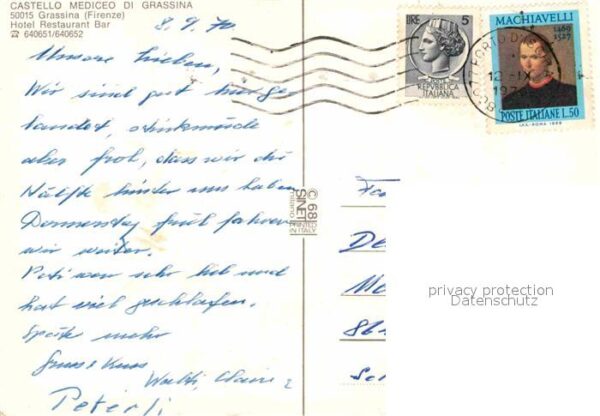 CASTELLO MEDICEO DI GRASSINA
50015 Grassina (Firenze)
Hotel Restaurant Bar
☎ 640651/640652
8.9.70
Unsere Lieben,
Wir sind gut hier ge
landet, stinkmüde
aber froh, dass wir die
Hälfte hinter uns haben
Donnerstag früh fahren
wir weiter.
Peti war sehr lieb und
hat viel geschlafen.
Später mehr
Gruss + Kuss
Walti, Claire
Peterli
LIRE 5
REPVBBLICA
ITALIANA
MACHIAVELLI
1469
1527
POSTE ITALIANE L.50
I.P.S.-ROMA-1969
© 68
SINET
Milano
PRINTED
IN ITALY
privacy protection
Datenschutz